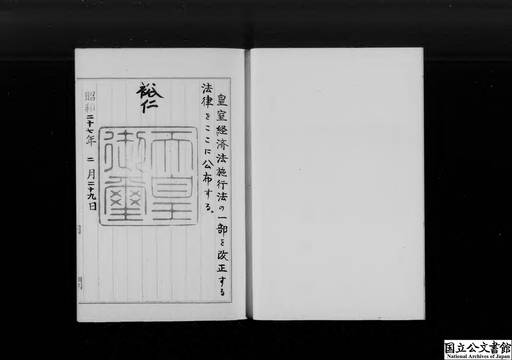 皇室経済法施行法の一部を改正する
法律をここに公布する。
裕仁
天皇
御璽
昭和二十七年二月二十九日
国立公文書館
National Archives of Japan